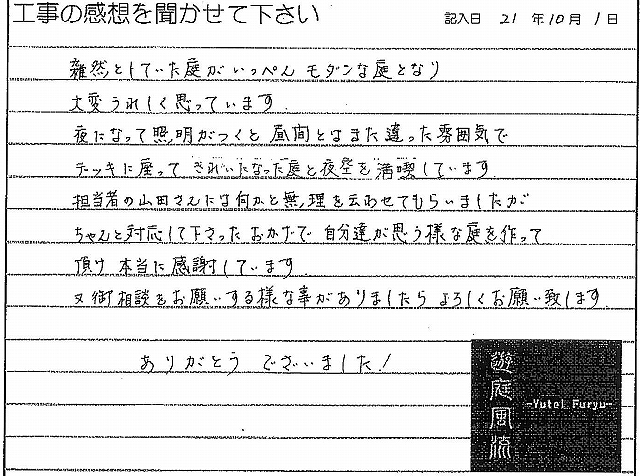 工事の感想を聞かせて下さい
記入日 21 年 10 月 1 日
雑然としていた庭がいっぺん モダンな庭となり
大変うれしく思っています.
夜になって照明がつくと 昼間とはまた違った雰囲気で
デッキに座って きれいになった庭と夜空を満喫しています
担当者の山田さんには何かと無理を云わせてもらいましたが
ちゃんと対応して下さったおかげで 自分達が思う様な庭を作って
頂け 本当に感謝しています.
又御相談をお願いする様な事がありましたら よろしくお願い致します.
ありがとう ございました!
遊庭風流
-Yutei Furyu-